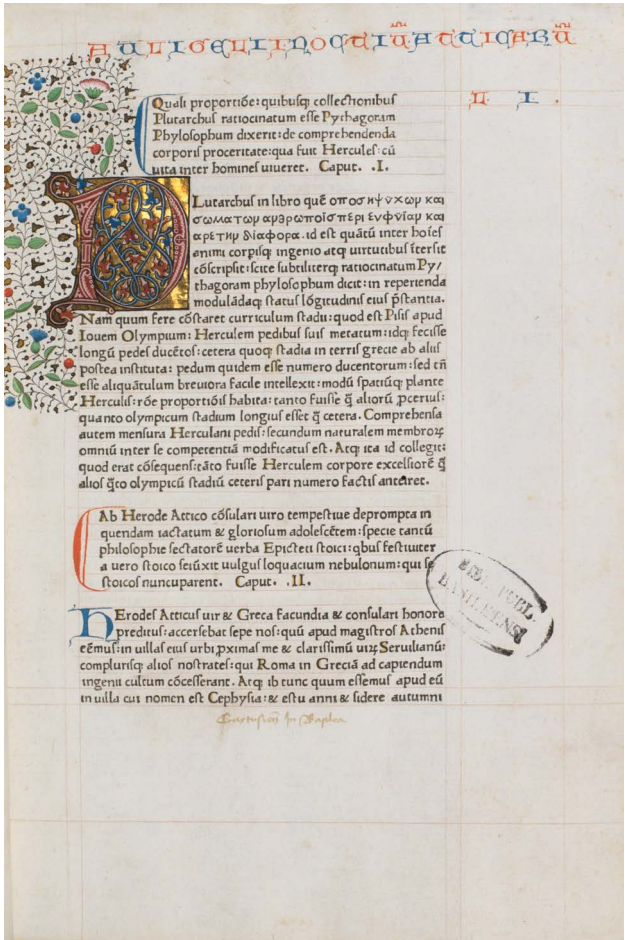 AULI GELII NOCTIŪ ATTICARŪ
L. I.
Quali proportiōe: quibusqꝫ collectionibus
Plutarchus ratiocinatum esse Pythagoram
Phylosophum dixerit: de comprehendenda
corporis proceritate: qua fuit Hercules: cū
uita inter homines uiueret. Caput. .I.
PLutarchus in libro quē οποσηψυχων και
σωματων ανθρωποισπερι ευφνίαν και
αρετην διαφορα. id est quātū inter hoīes
animi corpisqꝫ ingenio atqꝫ uirtutibus ītersit
cōscripsit: scite subtiliterqꝫ ratiocinatum Py/
thagoram phylosophum dicit: in reperienda
modulādaqꝫ status lōgitudinis eius p̄stantia.
Nam quum fere cōstaret curriculum stadii: quod est Pisis apud
Iouem Olympium: Herculem pedibus suis metatum: idqꝫ fecisse
longū pedes ducētos: cetera quoqꝫ stadia in terris grecie ab aliis
postea instituta: pedum quidem esse numero ducentorum: sed tn̄
esse aliquātulum breuiora facile intellexit: modū spatiūqꝫ plante
Herculis: rōe proportiōis habita: tanto fuisse q̄ aliorū ꝓcerius:
quanto olympicum stadium longius esset q̄ cetera. Comprehensa
autem mensura Herculani pedis: secundum naturalem membroꝝ
omniū inter se competentiā modificatus est. Atqꝫ ita id collegit:
quod erat cōsequens: tāto fuisse Herculem corpore excelsiorē q̄
alios q̄to olympicū stadiū ceteris pari numero factis anteiret.
Ab Herode Attico cōsulari uiro tempestiue deprompta in
quendam iactatum & gloriosum adolescētem: specie tantū
philosophie sectatorē uerba Epicteti stoici: qbus festiuiter
a uero stoico seiūxit uulgus loquacium nebulonum: qui se
stoicos nuncuparent. Caput. .II.
HErodes Atticus uir & Greca facundia & consulari honore
preditus: accersebat sepe nos: quū apud magistros Athenis
eēmus: in uillas eius urbi ꝓximas me & clarissimū uiꝝ Seruilianū:
complurisqꝫ alios nostrates: qui Roma in Greciā ad capiendum
ingenii cultum cōcesserant. Atqꝫ ib tunc quum essemus apud eū
in uilla cui nomen est Cephysia: & estu anni & sidere autumni
BIBL. PUBL.
BASILEENSI